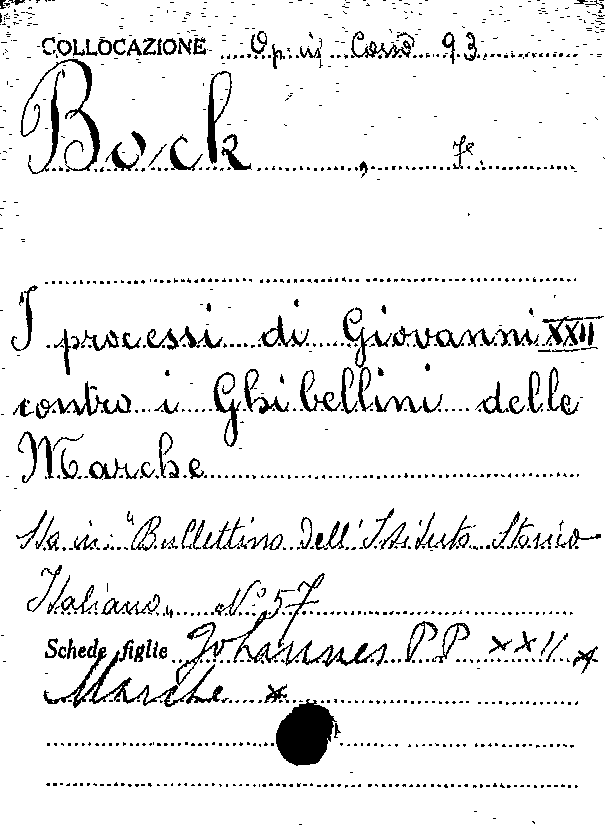 COLLOCAZIONE Op. in Corso 93
Bock, F.
I processi di Giovanni XXII
contro i Ghibellini delle
Marche
Sta in: "Bullettino dell'Istituto Storico
Italiano" N.° 57
Schede figlie Johannes PP XXII *
Marche *